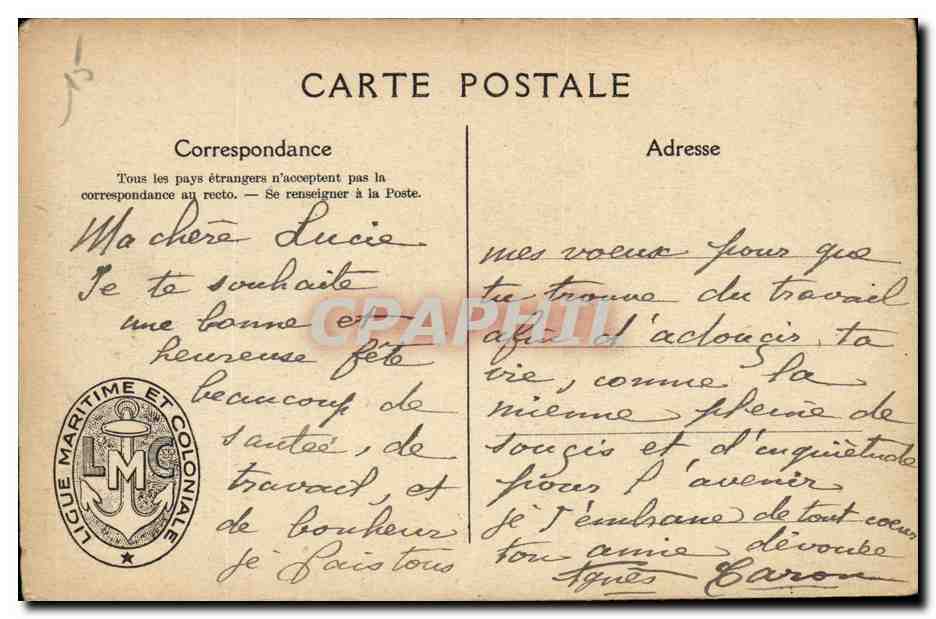 15
CARTE POSTALE
Correspondance
Tous les pays étrangers n'acceptent pas la
correspondance au recto. — Se renseigner à la Poste.
Ma chère Lucie
Je te souhaite
une bonne et
heureuse fête
beaucoup de
santée, de
travail, et
de bonheur
je fais tous
LIGUE MARITIME ET COLONIALE
LMC
Adresse
mes voeux pour que
tu trouve du travail
afin d'adouçir ta
vie, comme la
mienne pleine de
souçis et d'inquiètude
pour l'avenir
je t'embrasse de tout coeur
ton amie dévouée
Agnès Caron
CPAPHIL